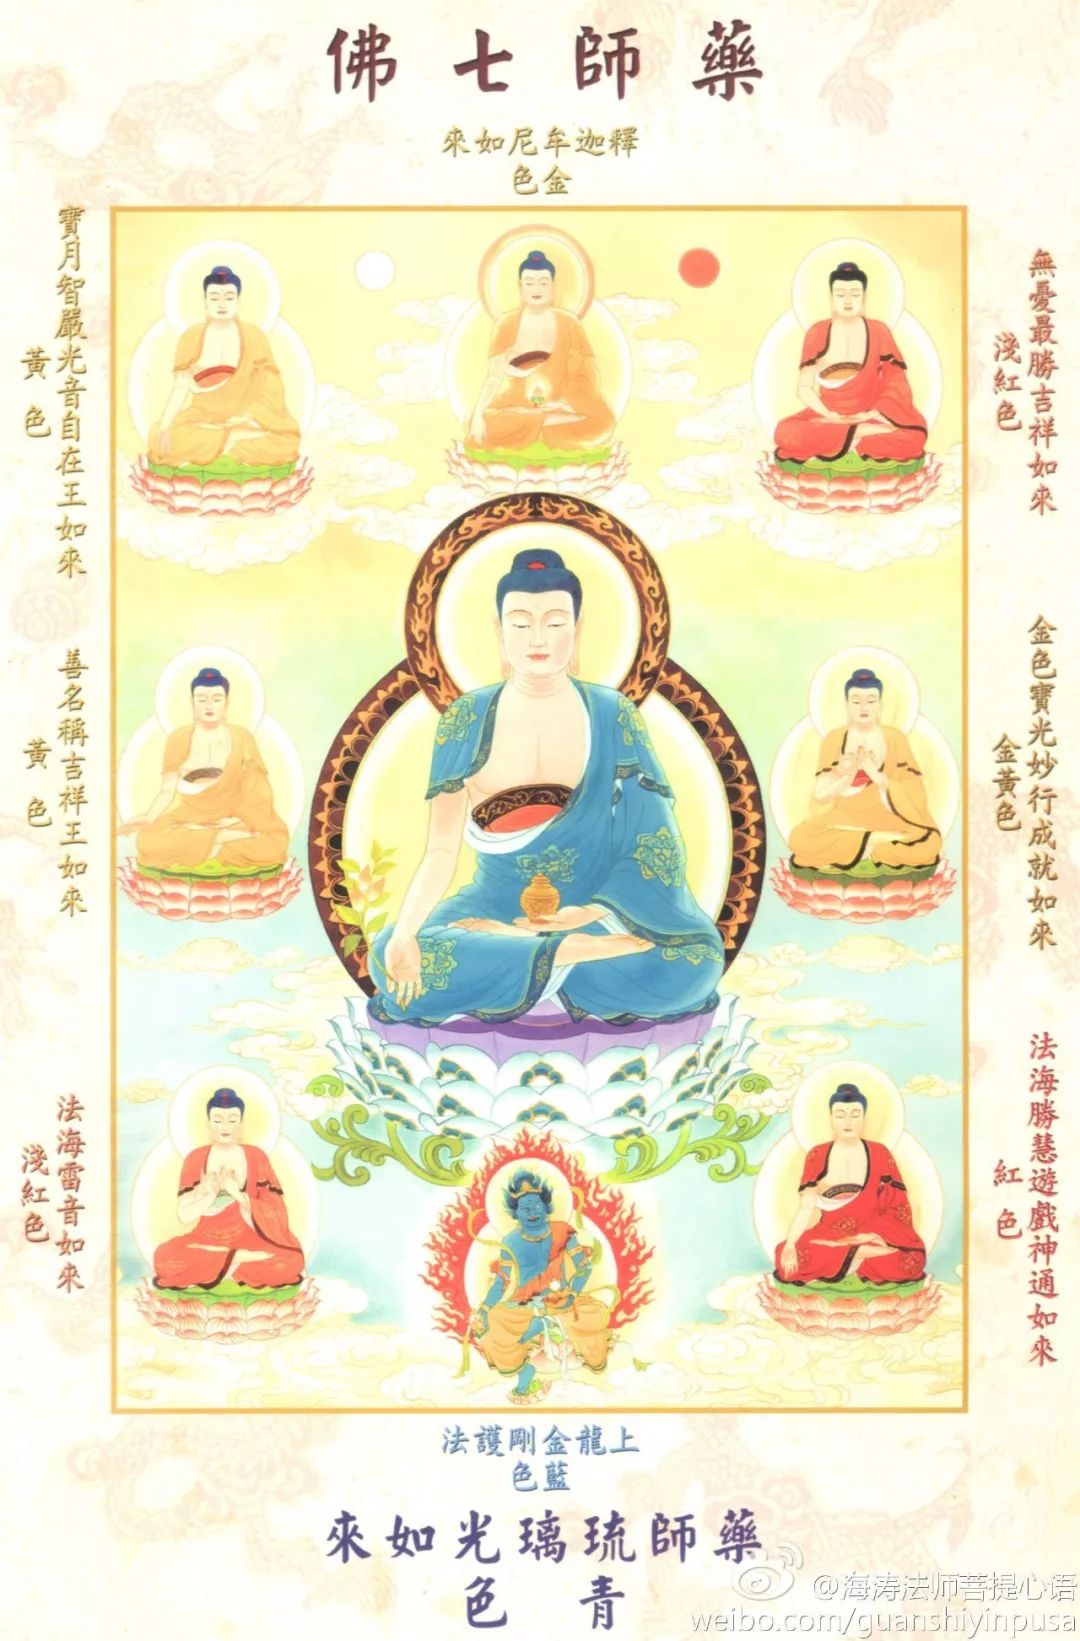 藥師七佛
釋迦牟尼如來
金色
無憂最勝吉祥如來
淺紅色
金色寶光妙行成就如來
金黃色
法海勝慧遊戲神通如來
紅色
寶月智嚴光音自在王如來
黃色
善名稱吉祥王如來
黃色
法海雷音如來
淺紅色
上龍金剛護法
藍色
藥師琉璃光如來
青色
@海涛法师菩提心语
weibo.com/guanshiyinpusa